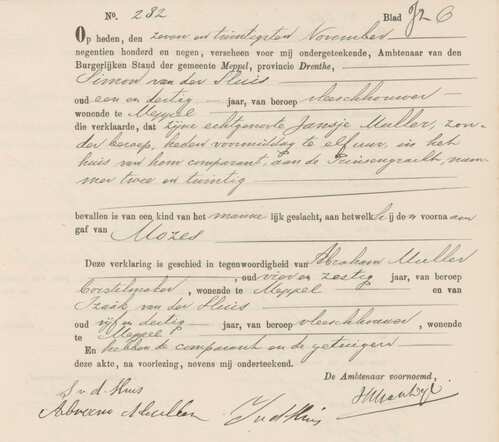 No. 232 Blad
Op heden, den zeven en twintigsten November
negentien honderd en negen, verscheen voor mij ondergeteekende, Ambtenaar van den
Burgerlijken Stand der gemeente Meppel, provincie Drenthe,
Simon van der Sluis
oud een en dertig jaar, van beroep vleeschhouwer
wonende te Meppel
die verklaarde, dat zijne echtgenoote Jansje Muller, zon-
der beroep, heden voormiddag te elf uur, in het
huis van hem comparant, aan de Prinsengracht, num-
mer twee en twintig
bevallen is van een kind van het mannelijk geslacht, aan hetwelk hij de voornaam
gaf van Mozes
Deze verklaring is geschied in tegenwoordigheid van Abraham Muller
, oud vier en zestig jaar, van beroep
Borstelmaker, wonende te Meppel en van
Izaäk van der Sluis
oud vijf en dertig jaar, van beroep vleeschhouwer, wonende
te Meppel
En hebben de comparant en de getuigen
deze akte, na voorlezing, nevens mij onderteekend.
De Ambtenaar voornoemd,
S v d Sluis
Muller I v d Sluis